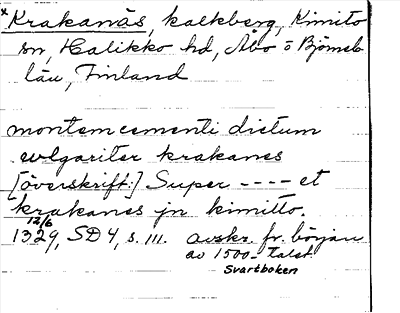 *Krakanäs, kalkberg, Kimito
sn, Halikko hd, Åbo o Björneb.
län, Finland
montem cementi dictum
wlgariter krakanes
[överskrift:] Super ---- et
krakanes jn kimitto.
12/6
1329, SD 4, s. 111. avskr. fr. början
av 1500-talet
Svartboken